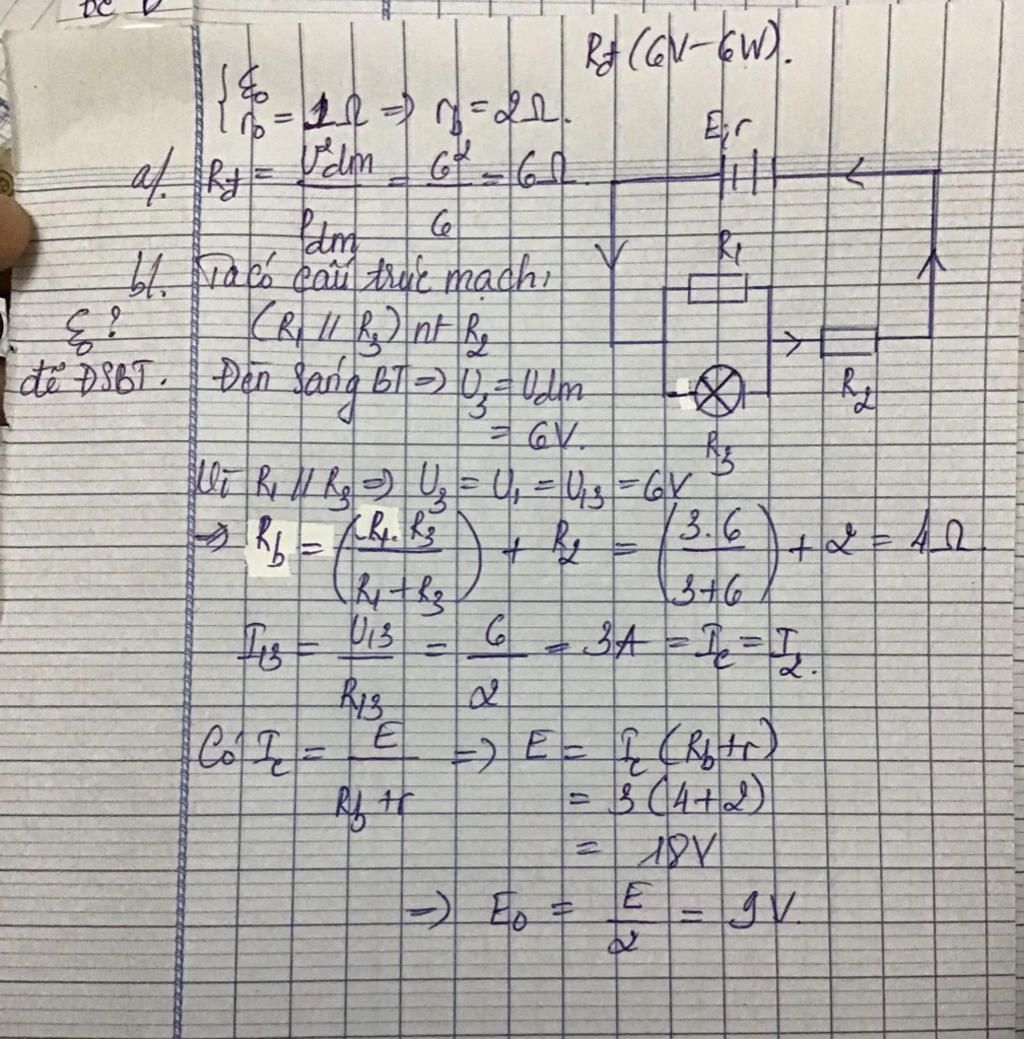 ĐC
Rđ (6V - 6W).
ξ0
r0 = 1Ω => rb = 2Ω.
E,r
a/. Rđ = U²đm / Pđm = 6² / 6 = 6Ω
R1
b/. Ta có cấu trúc mạch,
ξ?
(R1 // R3) nt R2
để ĐSBT.
Đèn sáng BT => U3 = Udm
R2
= 6V.
R3
Vì R1 // R3 => U3 = U1 = U13 = 6V
=> Rb = (R1.R3 / R1+R3) + R2 = (3.6 / 3+6) + 2 = 4Ω
I13 = U13 / R13 = 6 / 2 = 3A = Ic = I2.
Có Ic = E / Rb+r => E = Ic (Rb+r)
= 3(4+2)
= 18V
=> E0 = E / 2 = 9V.